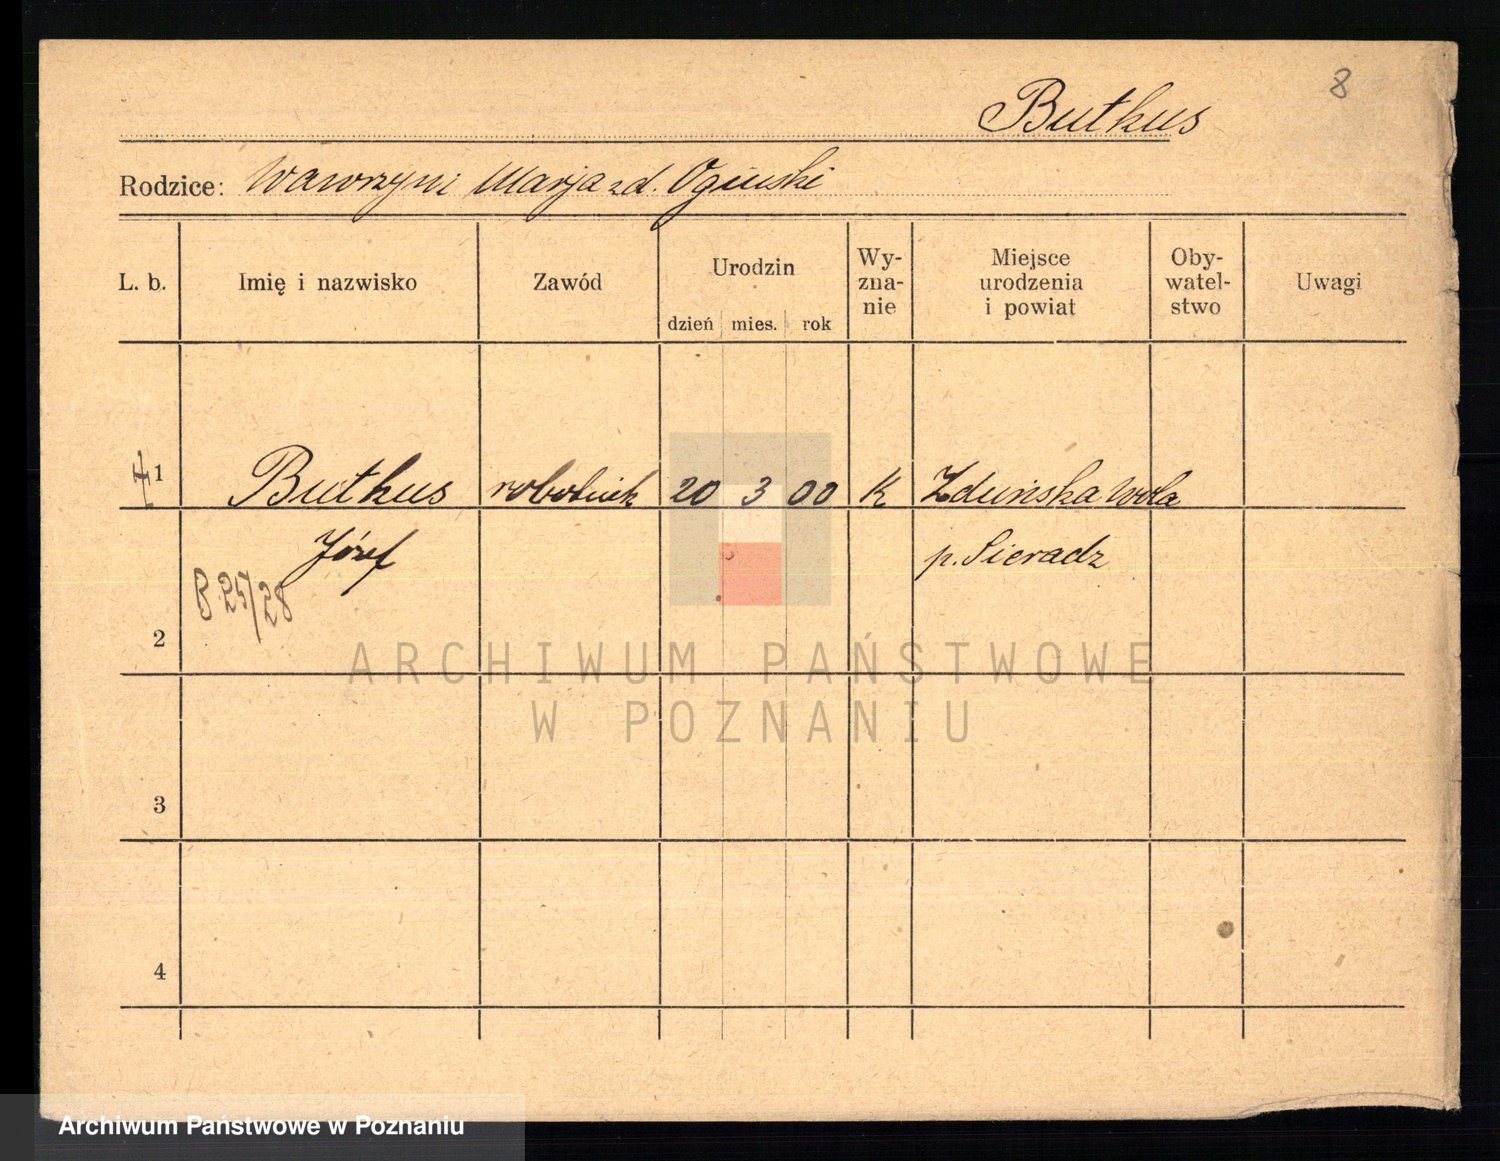 8
Butkus
Rodzice: Wawrzyn i Marja zd. Oginski
L. b. Imię i nazwisko Zawód Urodzin dzień mies. rok Wy-zna-nie Miejsce urodzenia i powiat Oby-watel-stwo Uwagi
1 Butkus robotnik 20 3 00 K Zduńska Wola
Józef p. Sieradz
B 25/28
2
ARCHIWUM PAŃSTWOWE
W POZNANIU
3
4
Archiwum Państwowe w Poznaniu